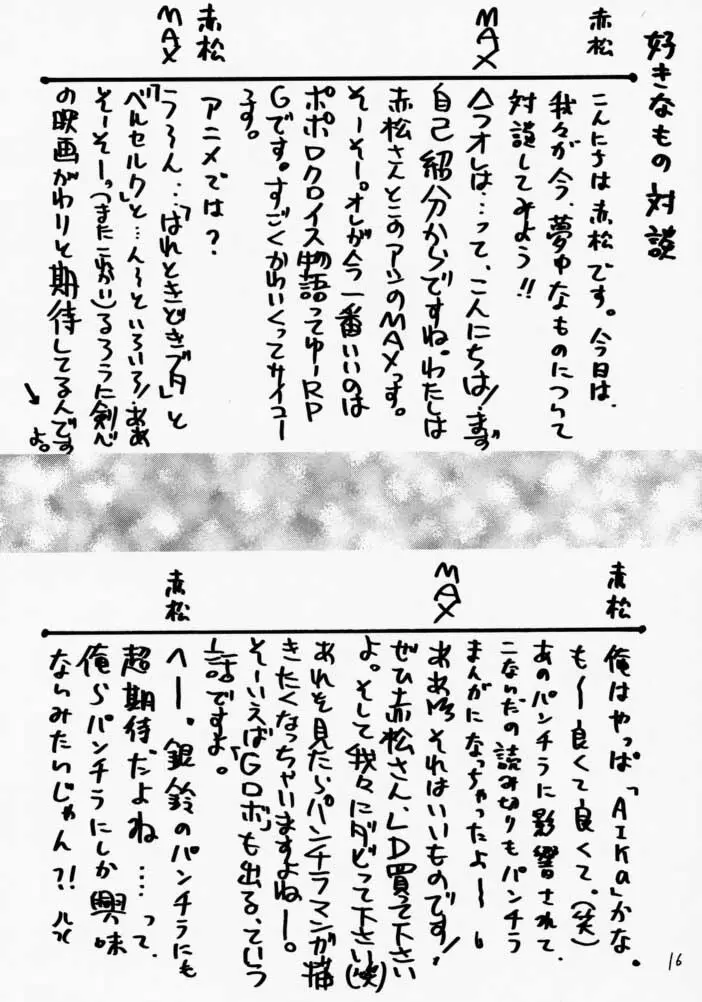 好きなもの対談
赤松
こんにちは赤松です。今日は、
我々が今、夢中なものについて
対談してみよう!!
MAX
ムフオレは…って、こんにちは!まず
自己紹介からですね。わたしは
赤松さんとこのアシのMAXっす。
そーそー。オレが今一番いいのは
ポポロクロイス物語ってゆーRP
Gです。すごくかわいくってサイコー
です。
赤松
アニメでは?
MAX
う〜ん…「はれときどきブタ」と
「ベルセルク」と…ん〜といろいろ!ああ
そーそーっ(またこれかい)るろうに剣心
の映画がわりと期待してるんです
よ。
赤松
俺はやっぱ「AIKa」かな。
も〜良くて良くて。(笑)
あのパンチラに影響されて、
こないだの読み切りもパンチラ
まんがになっちゃったよ〜
MAX
ああ それはいいものです!
ぜひ赤松さん、LD買って下さい
よ。そして我々にダビって下さい(笑)
あれを見たらパンチラマンガ描
きたくなっちゃいますよねー。
そーいえば「Gロボ」も出る、ていう
話ですよ。
赤松
へー。銀鈴のパンチラにも
超期待だよね……って、
俺らパンチラにしか興味
ないみたいじゃん?!
16